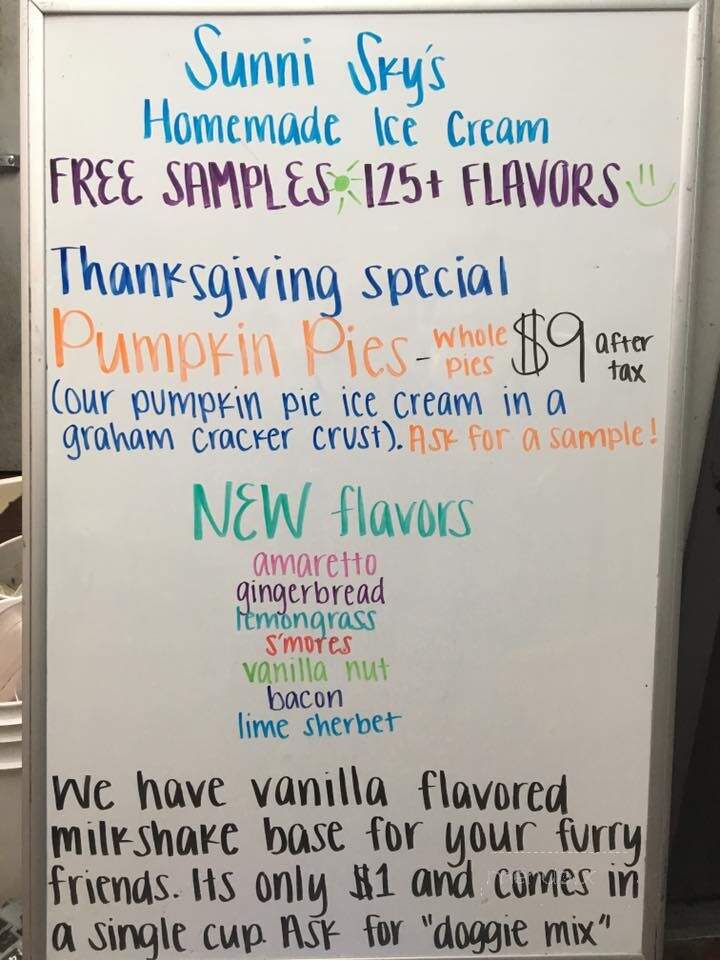 Sunni Sky's
Homemade Ice Cream
FREE SAMPLES 125+ FLAVORS
Thanksgiving special
Pumpkin Pies - whole pies $9 after tax
(our pumpkin pie ice cream in a
graham cracker crust). Ask for a sample!
NEW flavors
amaretto
gingerbread
lemongrass
s'mores
vanilla nut
bacon
lime sherbet
We have vanilla flavored
milkshake base for your furry
friends. Its only $1 and comes in
a single cup. Ask for "doggie mix"